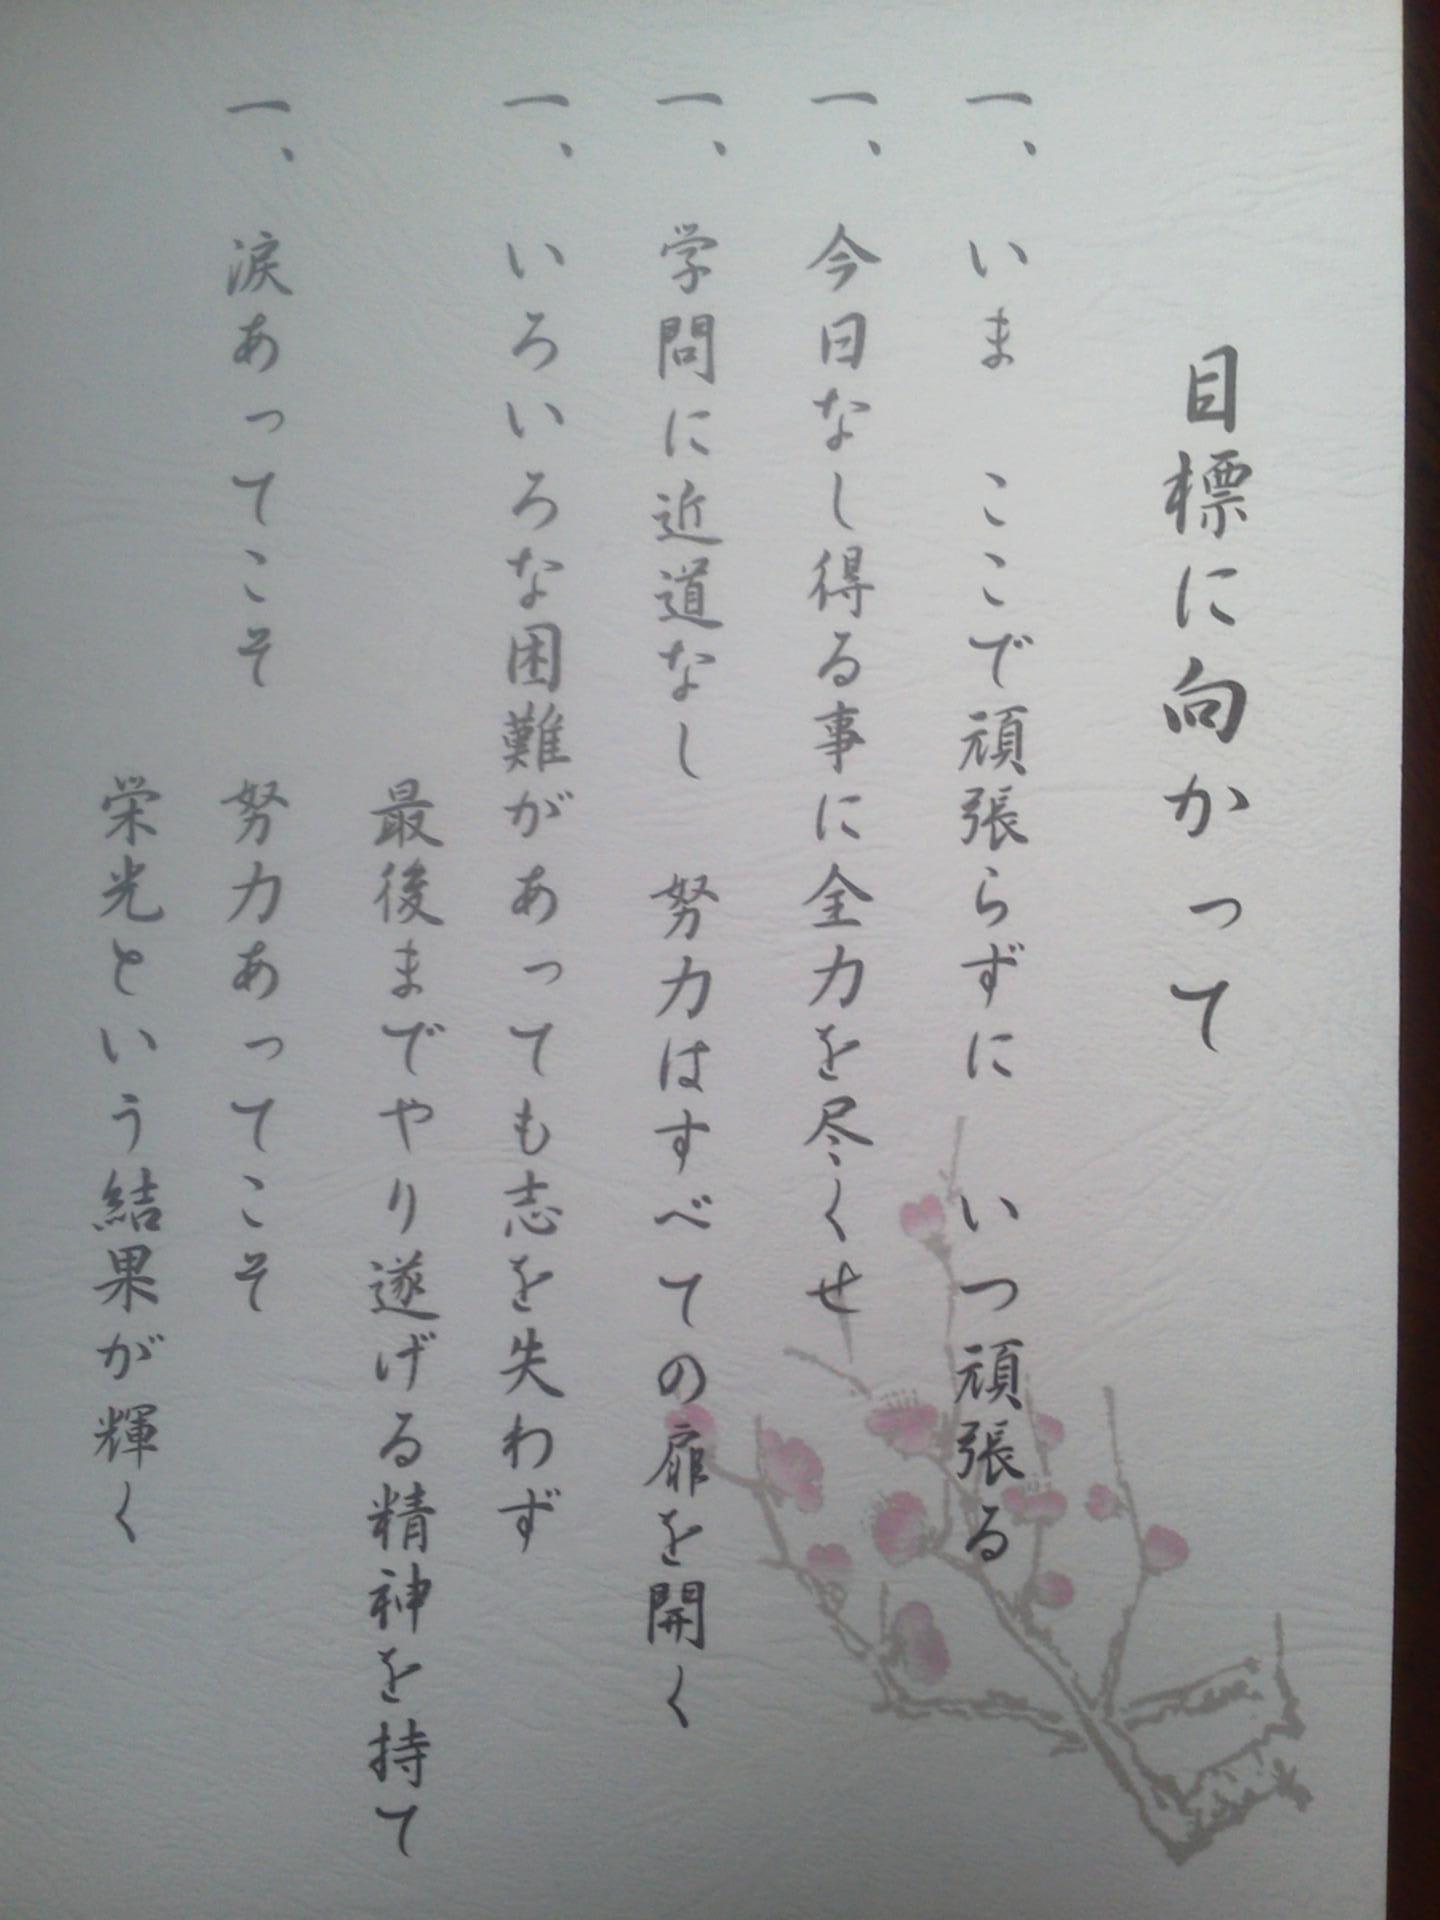 目標に向かって
一、いま　ここで頑張らずに　いつ頑張る
一、今日なし得る事に全力を尽くせ
一、学問に近道なし　努力はすべての扉を開く
一、いろいろな困難があっても志を失わず
最後までやり遂げる精神を持て
一、涙あってこそ　努力あってこそ
栄光という結果が輝く